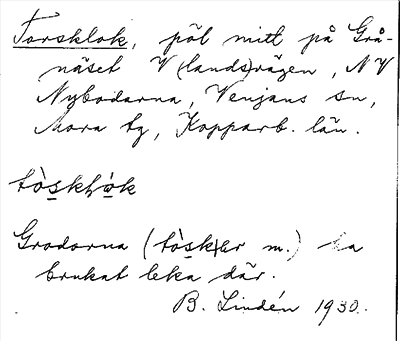 Torsklok, pöl mitt på Grå-
näset V (lands)vägen, NV
Nybodarna, Venjans sn,
Mora tg, Kopparb. län.
Grodorna (tòsk(er m.) ha
brukat leka där.
B. Lindén 1930.